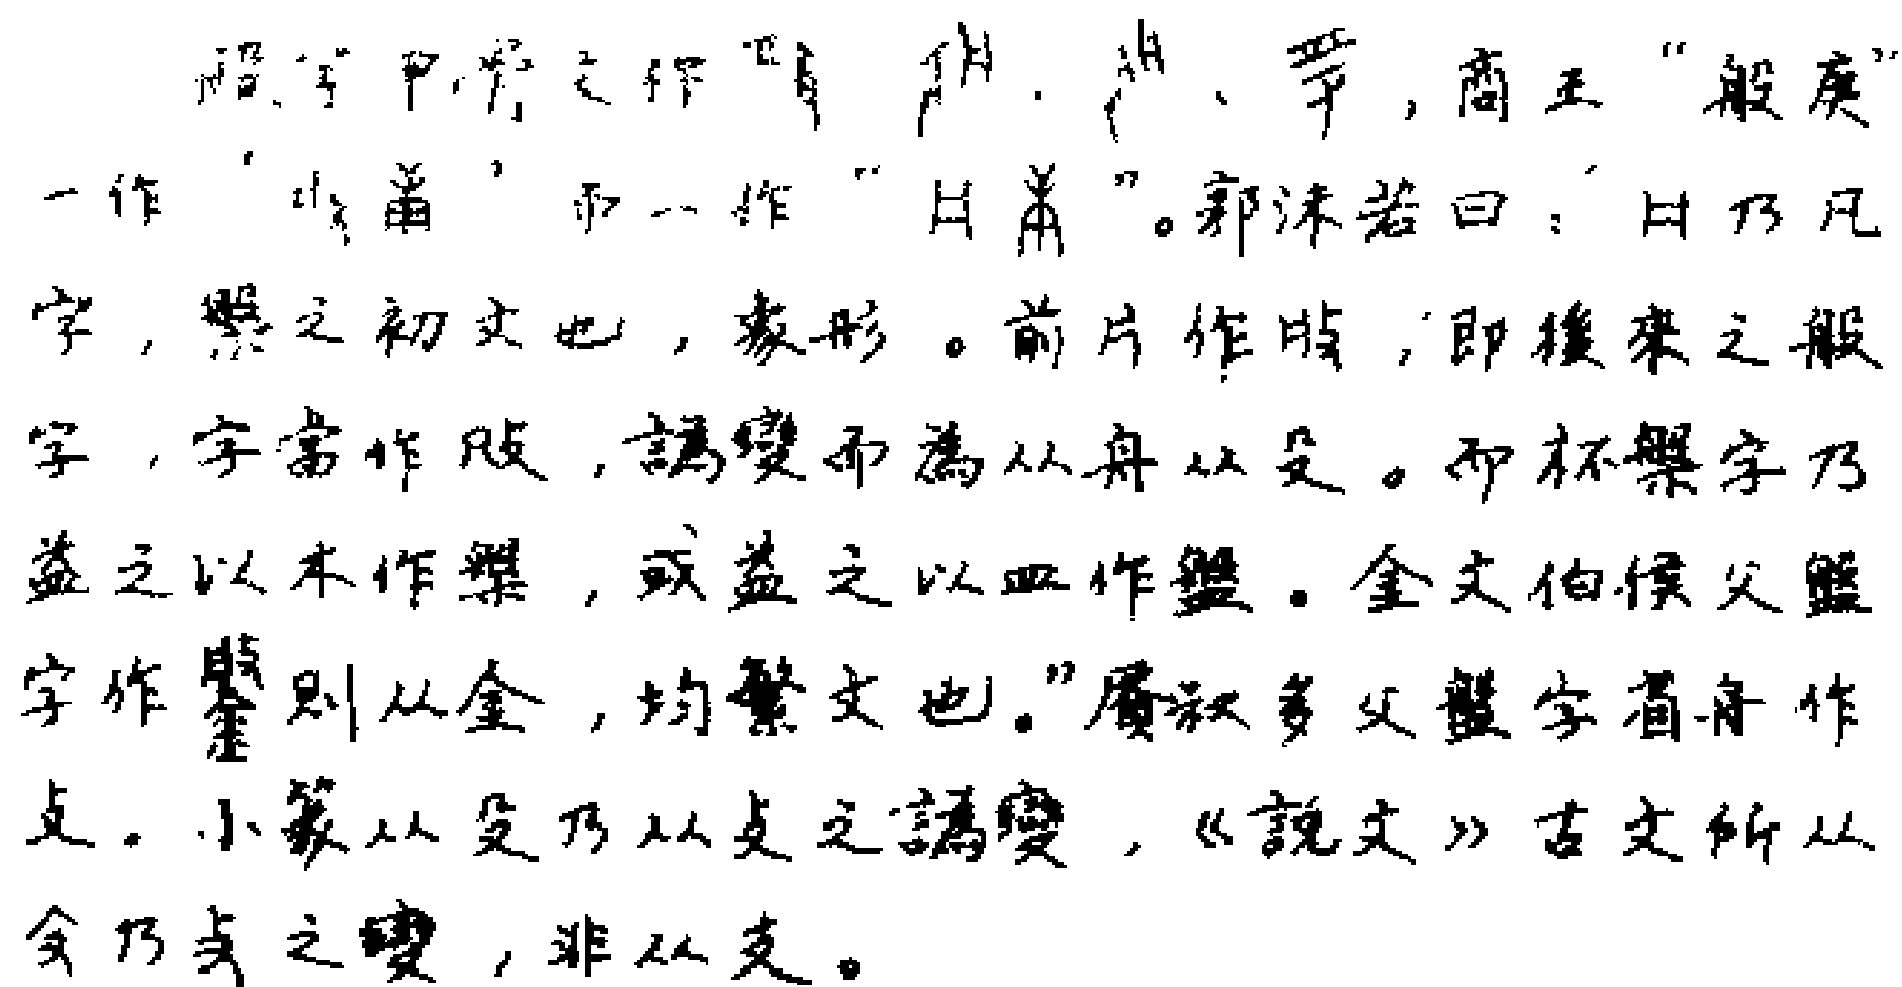 般字甲骨文作，商王“般庚”
一作“”而一作“”。郭沫若曰：“乃凡
字，槃之初文也，象形。前片作，即後來之般
字，字當作，譌變而為从舟从殳。而杯槃字乃
益之以木作槃，或益之以皿作盤。金文伯侯父盤
字作鎜則从金，均繁文也。”叔多父盤字省舟作
攴。小篆从殳乃从攴之譌變，《說文》古文所从
乃攴之變，非从支。